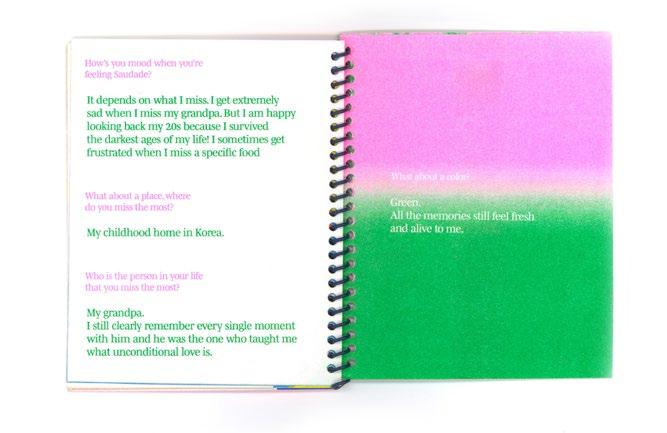 How's you mood when you're
feeling Saudade?
It depends on what I miss. I get extremely
sad when I miss my grandpa. But I am happy
looking back my 20s because I survived
the darkest ages of my life! I sometimes get
frustrated when I miss a specific food
What about a place, where
do you miss the most?
My childhood home in Korea.
Who is the person in your life
that you miss the most?
My grandpa.
I still clearly remember every single moment
with him and he was the one who taught me
what unconditional love is.
What about a color?
Green.
All the memories still feel fresh
and alive to me.